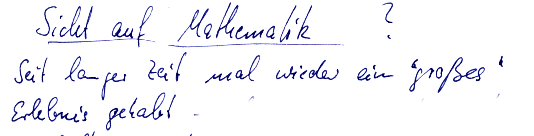 Sicht auf Mathematik ?
Seit langer Zeit mal wieder ein "großes"
Erlebnis gehabt.